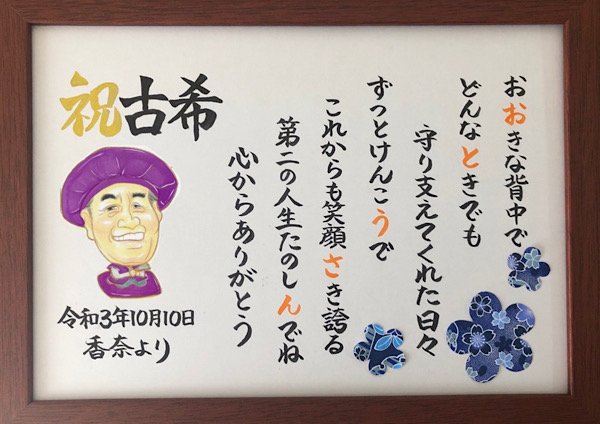 おおきな背中で
どんなときでも
守り支えてくれた日々
ずっとけんこうで
これからも笑顔さき誇る
第二の人生たのしんでね
心からありがとう
祝古希
令和3年10月10日
香奈より